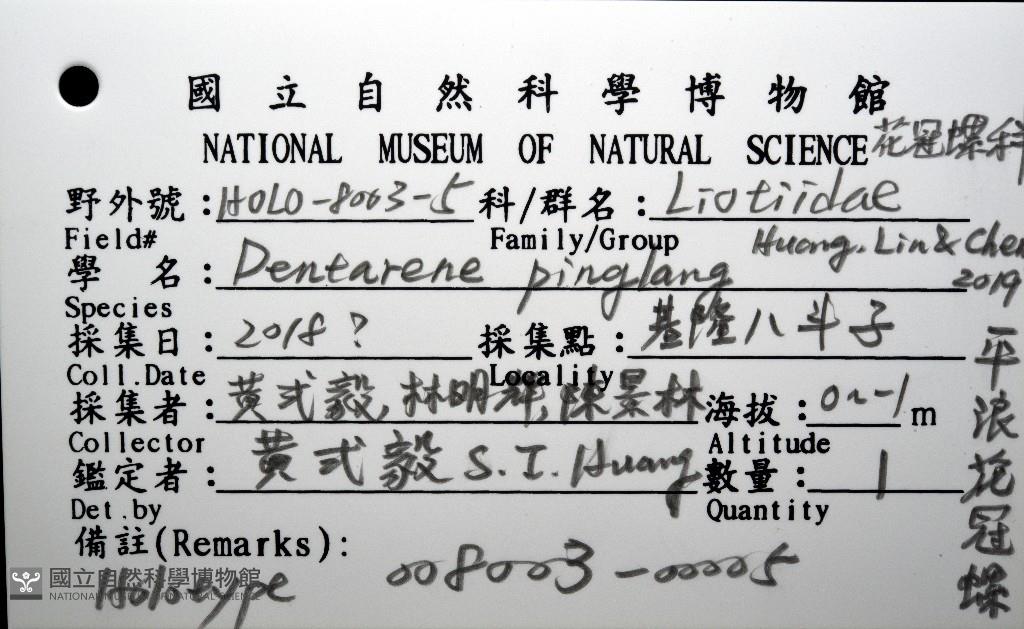 國立自然科學博物館
NATIONAL MUSEUM OF NATURAL SCIENCE 花冠螺科
野外號:HOLO-8003-5 科/群名:Liotiidae
Field# Family/Group Huang. Lin & Chen 2019
學 名:Dentarene pinglang
Species
採集日:2018? 採集點:基隆八斗子
Coll.Date Locality
採集者:黃式毅,林明輝,陳景林 海拔:0~-1 m
Collector Altitude
鑑定者:黃式毅 S. I. Huang 數量:1
Det.by Quantity
備註(Remarks):
Holotype 008003-00005
平浪花冠螺
國立自然科學博物館
NATIONAL MUSEUM OF NATURAL SCIENCE